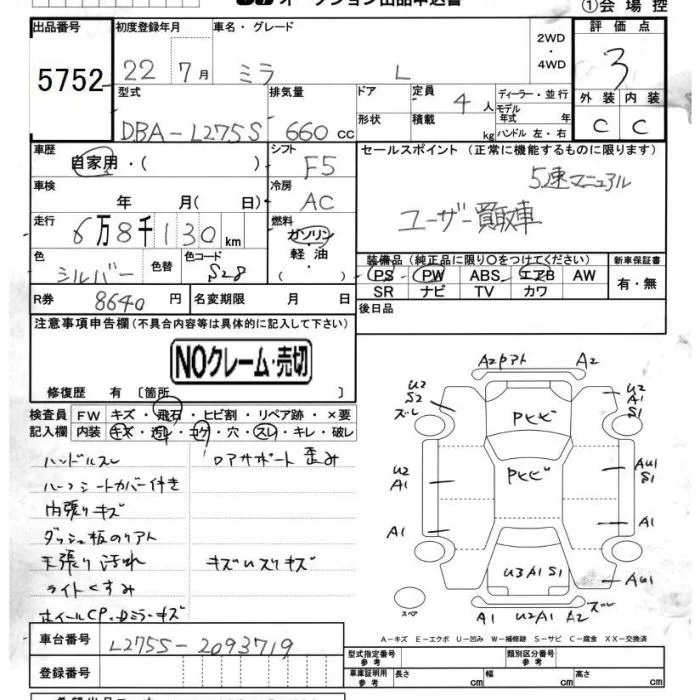 オークション出品申込書
①会場控
出品番号 初度登録年月 車名・グレード 2WD・4WD 評価点
5752 22 7月 ミラ L 3
型式 排気量 ドア 定員 ディーラー・並行 外装 内装
DBA-L275S 660cc 4人 モデル年式 年 C C
形状 積載 kg ハンドル 左・右
車歴 シフト セールスポイント (正常に機能するものに限ります)
自家用・( ) F5 5速マニュアル
車検 冷房
年 月( 日) AC ユーザー買取車
走行 燃料
6万8千130km ガソリン・軽油・( )
色 色替 色コード 装備品(純正品に限り○をつけてください) 新車保証書
シルバー S28 PS PW ABS エアB AW 有・無
SR ナビ TV カワ
R券 8640円 名変期限 月 日 後日品
注意事項申告欄(不具合内容等は具体的に記入して下さい)
NOクレーム・売切
修復歴 有 〔箇所 〕
検査員 FW キズ・飛石・ヒビ割・リペア跡・×要
記入欄 内装 キズ・汚れ・コゲ・穴・スレ・キレ・破レ
ハンドルスレ ロアサポート 歪み
ハーフシートカバー付き
内張りキズ
ダッシュ板のリアト
天張り汚れ キズUスリキズ
ライトくすみ
ホイールCP・ドミラーキズ
A2Pアト A2
U2 S2 ズレ
U2 A1 S1
Pヒビ
Pヒビ
U2 A1
AU1 S1
A1
A1
U3A1S1
AU1
スペア
A1 U2A1 A2 ズレ
A-キズ E-エクボ U-凹み W-補修跡 S-サビ C-腐食 XX-交換済
車台番号 L275S-2093719
型式指定番号 参考 類別区分番号 参考
登録番号 車庫証明用 参考 長さ cm 幅 cm 高さ cm